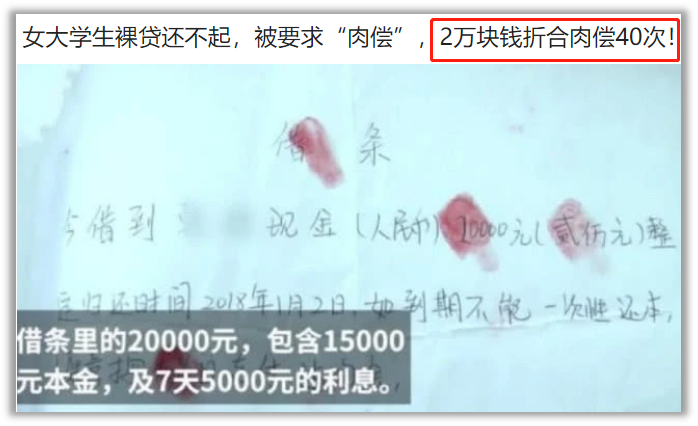 女大学生裸贷还不起，被要求“肉偿”，2万块钱折合肉偿40次！
借 条
今借到 现金(人民币) 0000元(贰 元)整
定归还时间2018年1月2日,如到期不能一次性还本,
借条里的20000元，包含15000
元本金，及7天5000元的利息。